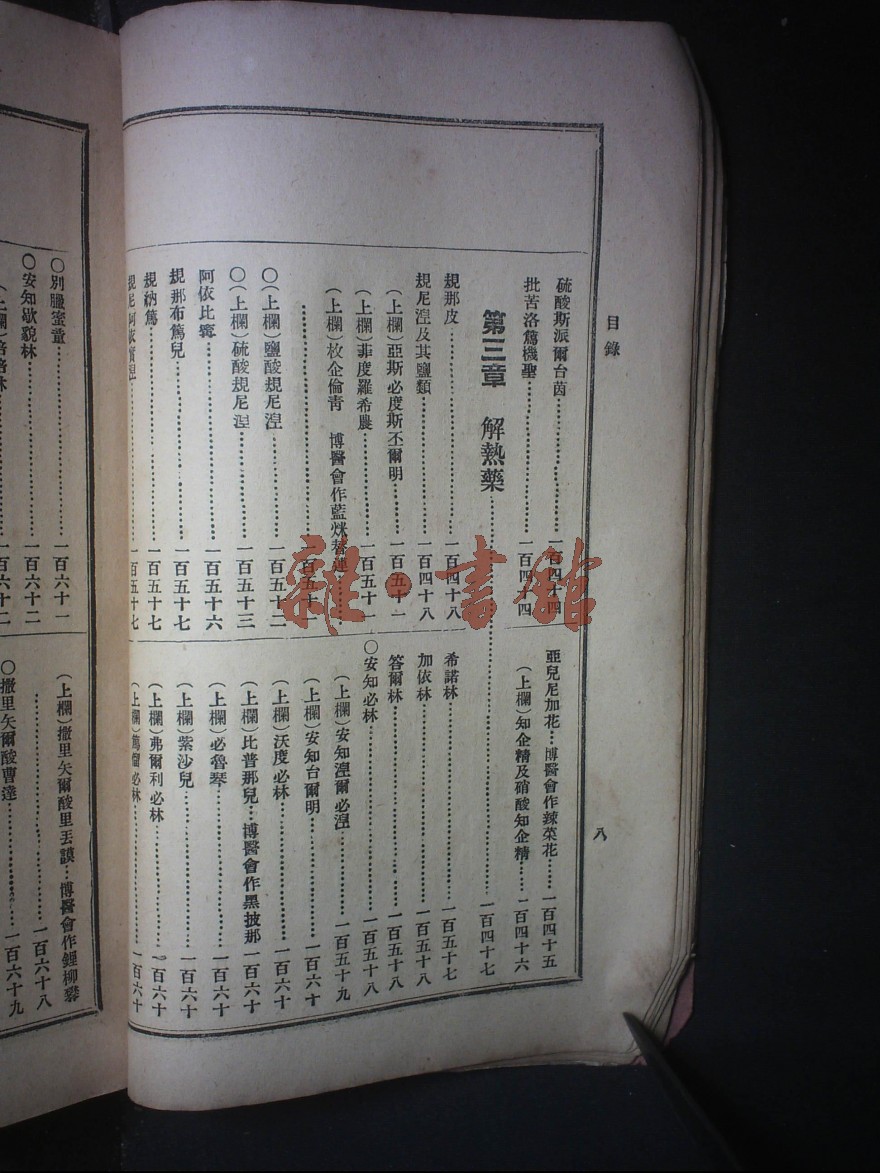 目錄
八
硫酸斯派爾台茵……一百四十四
批苦洛篤機聖……一百四十四
亞兒尼加花…博醫會作辣菜花…一百四十五
(上欄)知企精及硝酸知企精…一百四十六
第三章 解熱藥……一百四十七
規那皮……一百四十八
規尼湼及其鹽類……一百四十八
(上欄)亞斯必度斯丕爾明……一百五十一
(上欄)菲度羅希農……一百五十一
(上欄)枚企倫靑 博醫會作藍……
……一百五十一
〇(上欄)鹽酸規尼湼……一百五十二
〇(上欄)硫酸規尼湼……一百五十三
阿依比……一百五十六
規那布篤兒……一百五十七
規納篤……一百五十七
一百五十七
希諾林……一百五十七
加依林……一百五十八
答爾林……一百五十八
〇安知必林……一百五十八
(上欄)安知湼爾必湼……一百五十九
(上欄)安知台爾明……一百六十
(上欄)沃度必林……一百六十
(上欄)比普那兒…博醫會作黑披那一百六十
(上欄)必魯琴……一百六十
(上欄)紫沙兒……一百六十
(上欄)弗爾利必林……一百六十
(上欄)……必林……一百六十
〇別臘蜜童……一百六十一
〇安知歇貌林……一百六十二
(上欄)……林……一百六十二
(上欄)撒里矢爾酸里丟謨…博醫會作鋰柳礬
……一百六十八
〇撒里矢爾酸曹達……一百六十九
雜·書館